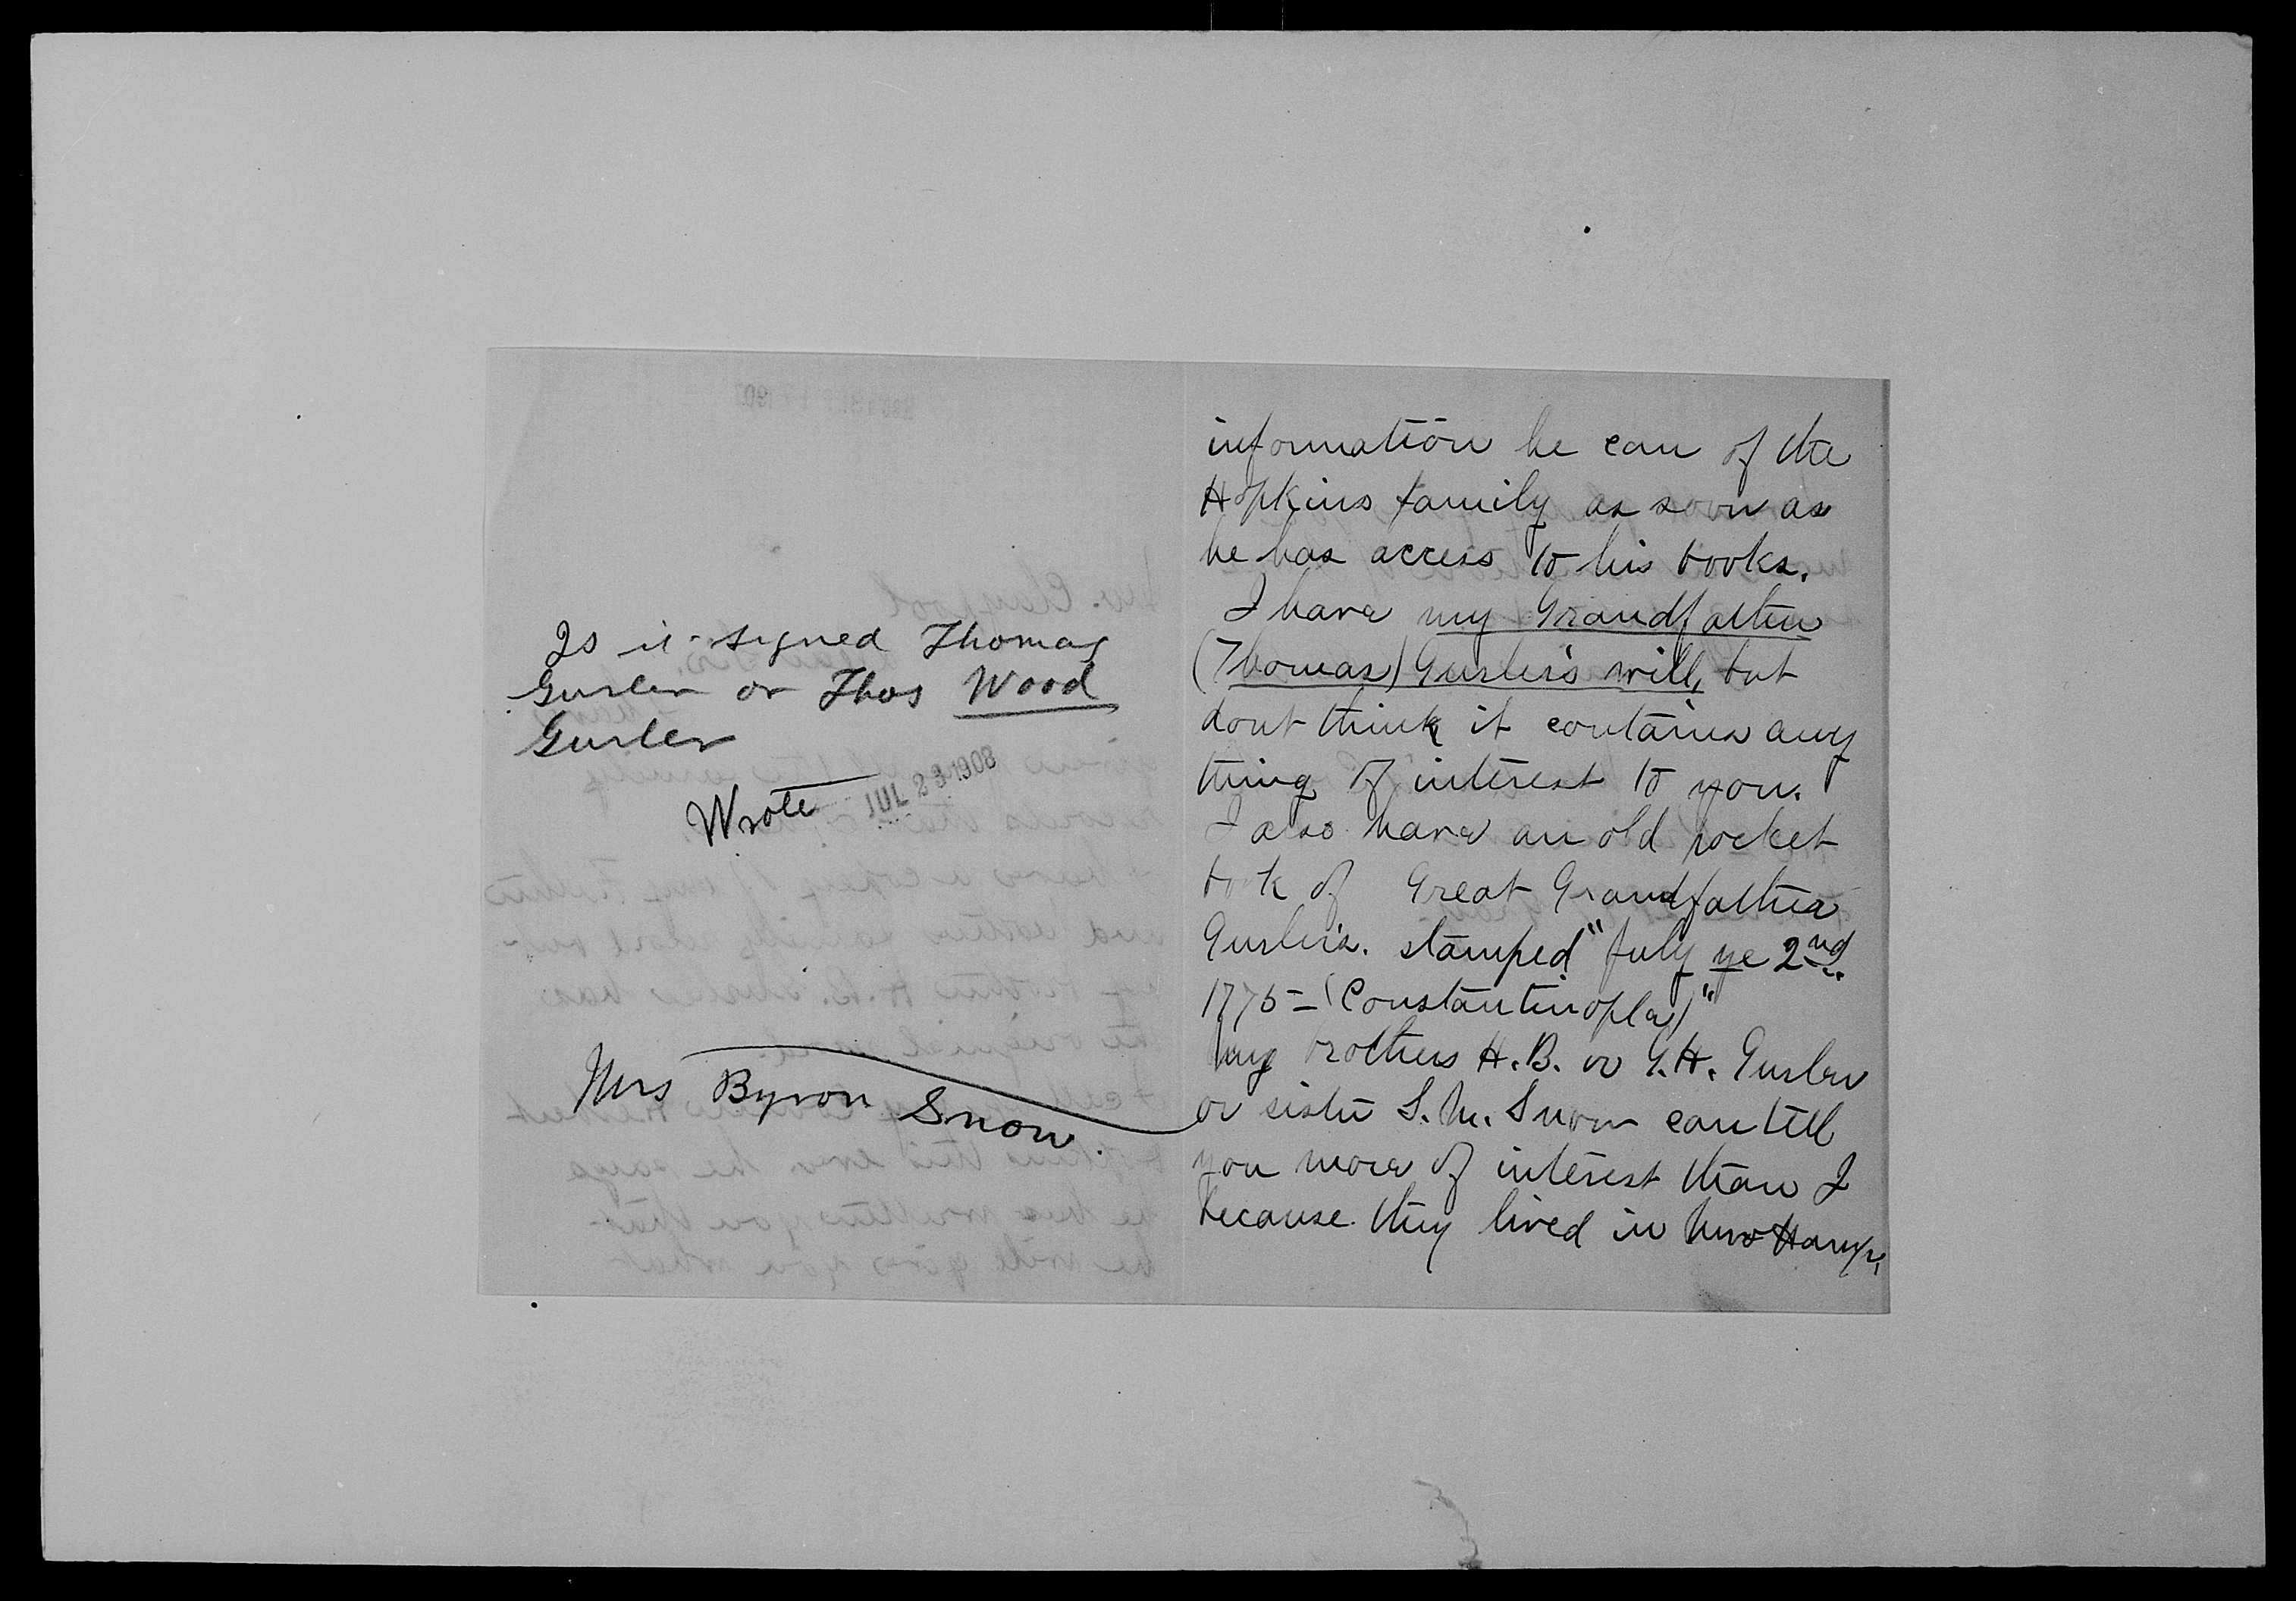 Is it signed Thomas
Gurler or Thos Wood
Gurler
Wrote JUL 23 1908
Mrs Byron Snow
information he can of the
Hopkins family as soon as
he has access to his books.
I have my Grandfather
(Thomas) Gurler's will, but
dont think it contains any
thing of interest to you.
I also have an old pocket
book of Great Grandfather
Gurler's. stamped "July ye 2nd
1775 - (Constantinople)"
My brothers H.B. or G.H. Gurler
or sister S.M. Snow can tell
you more of interest than I
because they lived in New Hamp.